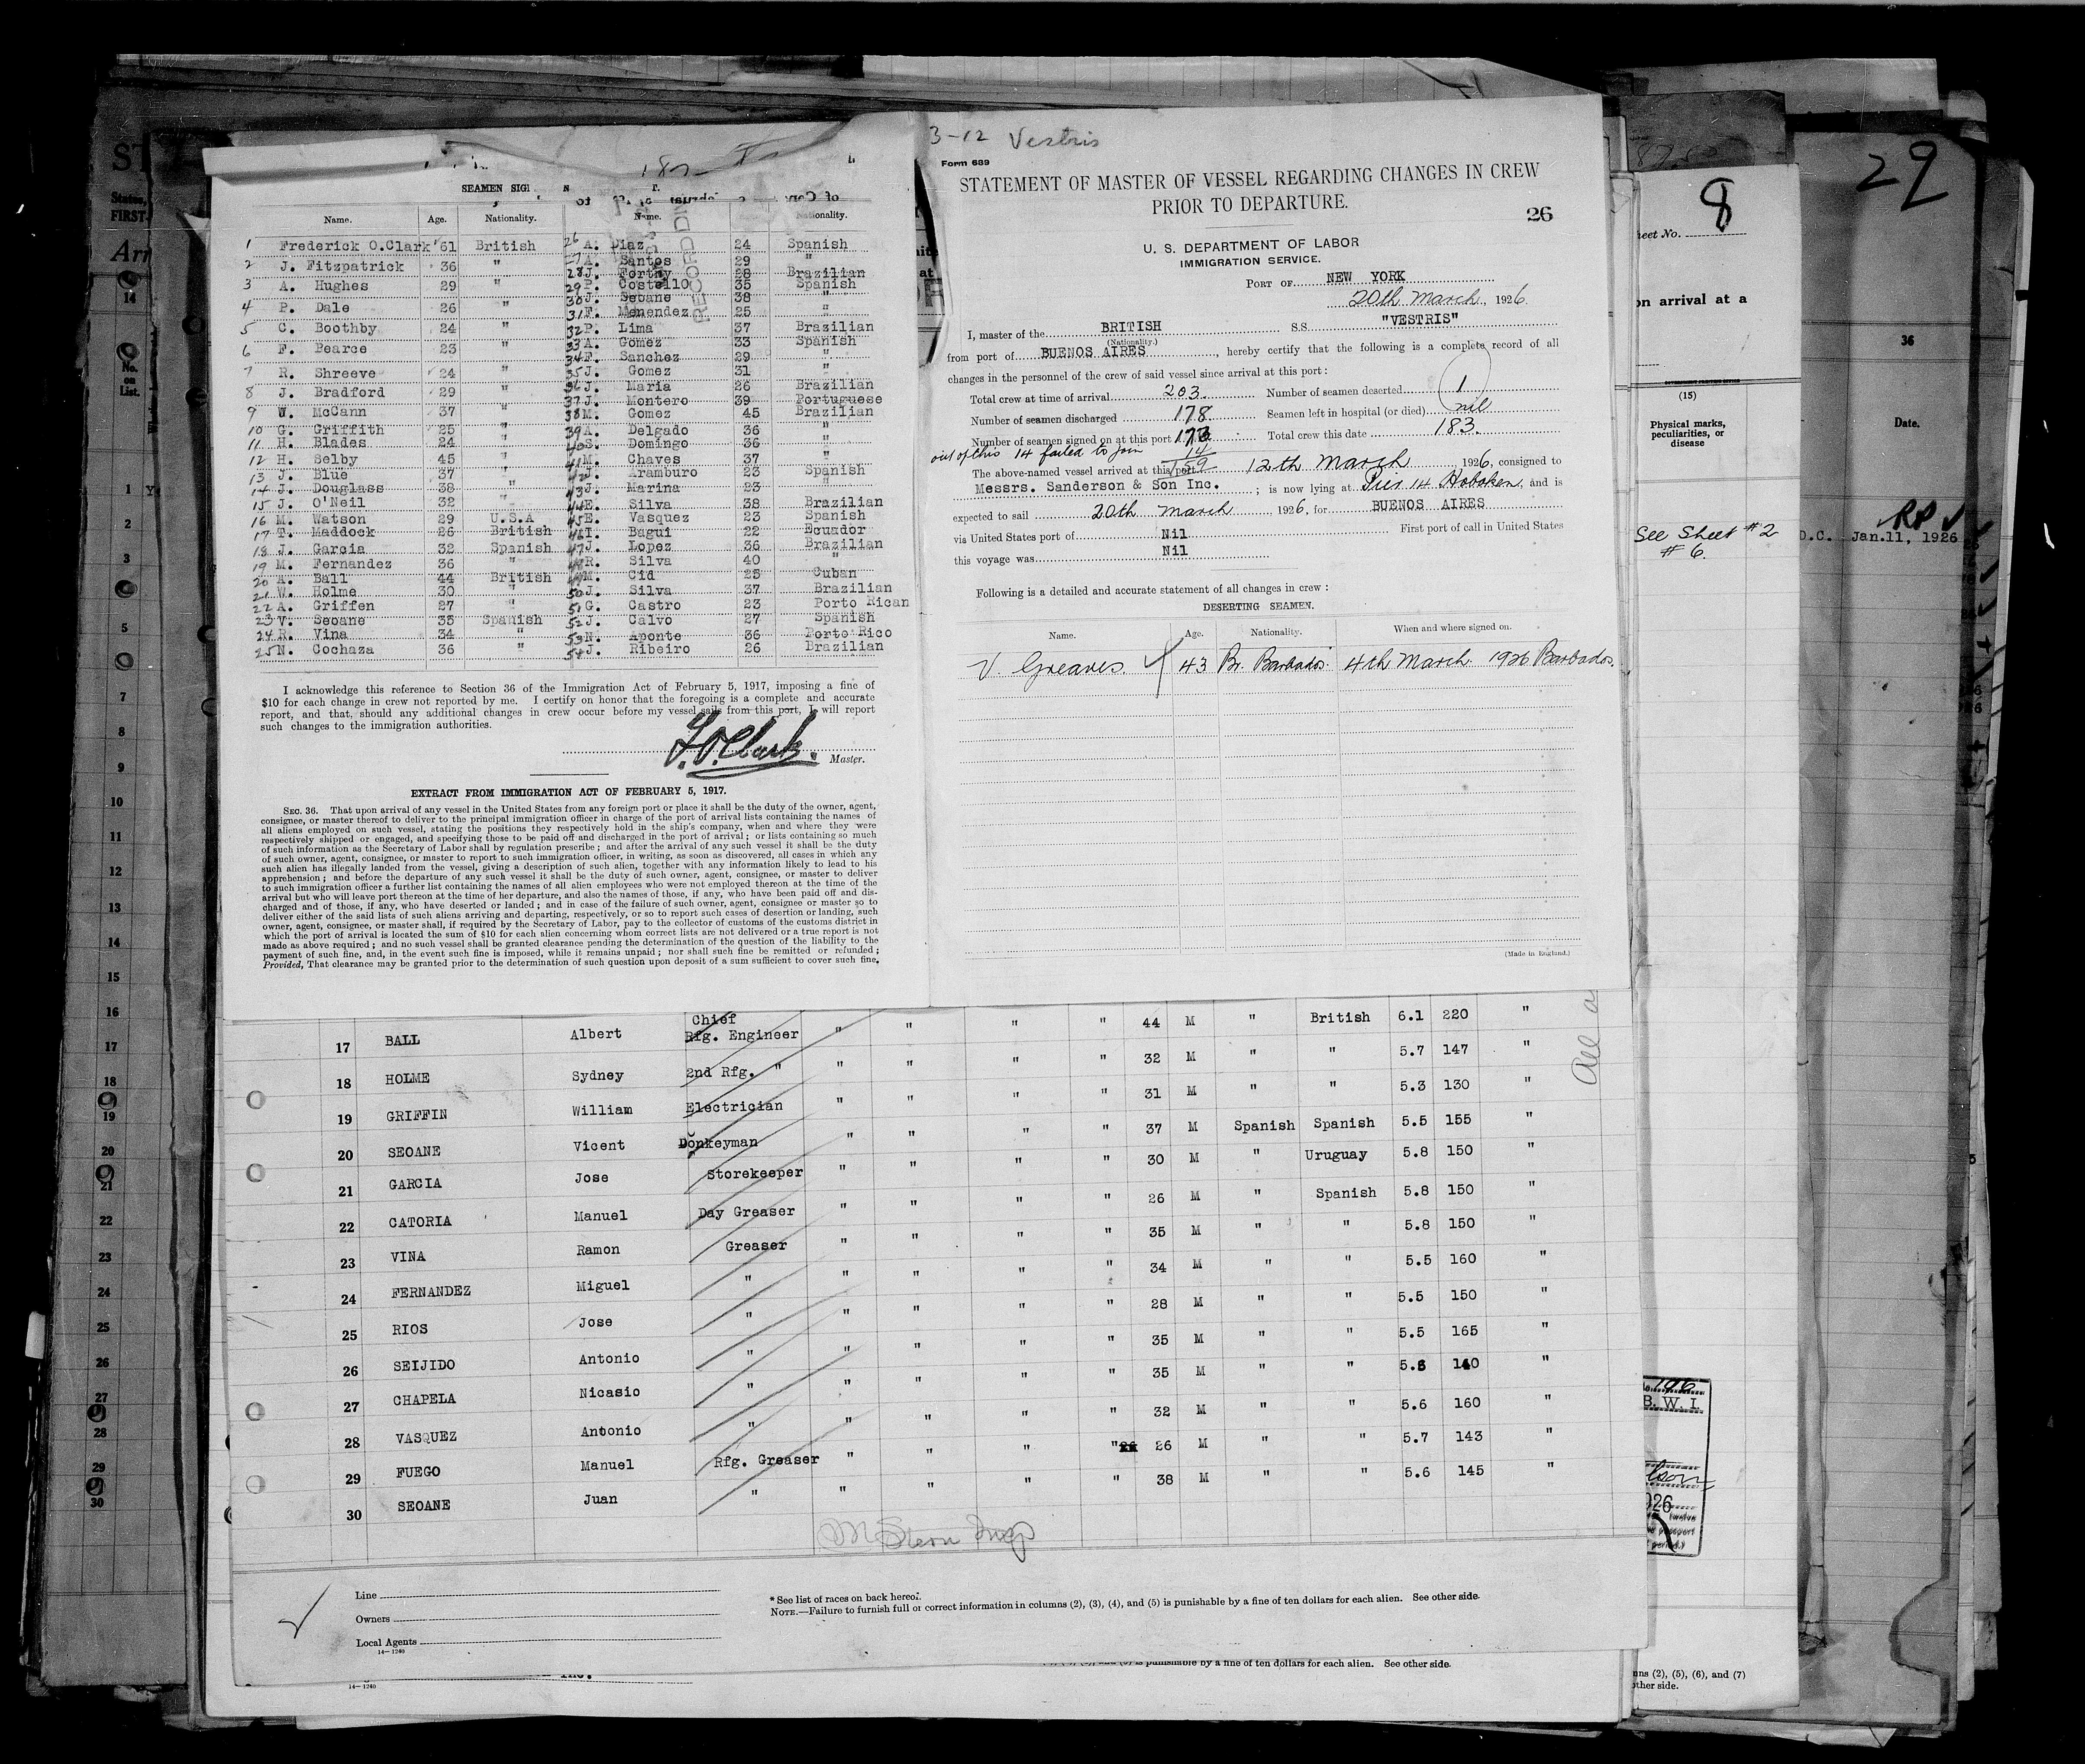 3-12 Vestris
Form 689
STATEMENT OF MASTER OF VESSEL REGARDING CHANGES IN CREW
PRIOR TO DEPARTURE.
26
U. S. DEPARTMENT OF LABOR
IMMIGRATION SERVICE.
PORT OF NEW YORK
20th March, 1926.
I, master of the BRITISH S.S. "VESTRIS"
(Nationality.)
from port of BUENOS AIRES, hereby certify that the following is a complete record of all
changes in the personnel of the crew of said vessel since arrival at this port :
Total crew at time of arrival 203. Number of seamen deserted 1
Number of seamen discharged 178 Seamen left in hospital (or died) nil
Number of seamen signed on at this port 173 Total crew this date 183.
out of this 14 failed to join 14
159
The above-named vessel arrived at this port 12th March, 1926, consigned to
Messrs. Sanderson & Son Inc. ; is now lying at Pier 14 Hoboken, and is
expected to sail 20th March, 1926, for BUENOS AIRES
via United States port of Nil First port of call in United States
this voyage was Nil
Following is a detailed and accurate statement of all changes in crew :
DESERTING SEAMEN.
Name. Age. Nationality. When and where signed on.
V. Greaves. 43 Br. Barbados 4th March 1926 Barbados.
(Made in England.)
SEAMEN SIG
Name. Age. Nationality. Name. Nationality.
1 Frederick O.Clark 61 British 26 A. Diaz 24 Spanish
2 J. Fitzpatrick 36 " 27 A. Santos 29 "
3 A. Hughes 29 " 28 J. Fortny 28 Brazilian
29 P. Costello 35 Spanish
4 P. Dale 26 " 30 J. Seoane 38 "
31 F. Menendez 25 "
5 C. Boothby 24 " 32 P. Lima 37 Brazilian
6 F. Pearce 23 " 33 A. Gomez 33 Spanish
34 F. Sanchez 29 "
7 R. Shreeve 24 " 35 J. Gomez 31 "
8 J. Bradford 29 " 36 J. Maria 26 Brazilian
37 J. Montero 39 Portuguese
9 W. McCann 37 " 38 M. Gomez 45 Brazilian
10 G. Griffith 25 " 39 A. Delgado 36 "
11 H. Blades 24 40 S. Domingo 36 "
12 H. Selby 45 " 41 M. Chaves 37 "
13 J. Blue 37 " 42 J. Aramburo 23 Spanish
14 J. Douglass 38 " 43 J. Marina 23 "
15 J. O'Neil 32 " 44 E. Silva 38 Brazilian
16 M. Watson 29 U.S.A 45 E. Vasquez 23 Spanish
17 T. Maddock 26 British 46 I. Bagui 22 Ecuador
18 J. Garcia 32 Spanish 47 J. Lopez 36 Brazilian
19 M. Fernandez 36 " 48 R. Silva 40 "
20 A. Ball 44 British 49 M. Cid 25 Cuban
21 W. Holme 30 " 50 J. Silva 37 Brazilian
22 A. Griffen 27 " 51 G. Castro 23 Porto Rican
23 V. Seoane 35 Spanish 52 J. Calvo 27 Spanish
24 R. Vina 34 " 53 N. Aponte 36 Porto Rico
25 N. Cochaza 36 " 54 J. Ribeiro 26 Brazilian
I acknowledge this reference to Section 36 of the Immigration Act of February 5, 1917, imposing a fine of
$10 for each change in crew not reported by me. I certify on honor that the foregoing is a complete and accurate
report, and that, should any additional changes in crew occur before my vessel sails from this port, I will report
such changes to the immigration authorities.
F.O. Clark. Master.
EXTRACT FROM IMMIGRATION ACT OF FEBRUARY 5, 1917.
SEC. 36. That upon arrival of any vessel in the United States from any foreign port or place it shall be the duty of the owner, agent,
consignee, or master thereof to deliver to the principal immigration officer in charge of the port of arrival lists containing the names of
all aliens employed on such vessel, stating the positions they respectively hold in the ship's company, when and where they were
respectively shipped or engaged, and specifying those to be paid off and discharged in the port of arrival ; or lists containing so much
of such information as the Secretary of Labor shall by regulation prescribe ; and after the arrival of any such vessel it shall be the duty
of such owner, agent, consignee, or master to report to such immigration officer, in writing, as soon as discovered, all cases in which any
such alien has illegally landed from the vessel, giving a description of such alien, together with any information likely to lead to his
apprehension ; and before the departure of any such vessel it shall be the duty of such owner, agent, consignee, or master to deliver
to such immigration officer a further list containing the names of all alien employees who were not employed thereon at the time of the
arrival but who will leave port thereon at the time of her departure, and also the names of those, if any, who have been paid off and dis-
charged and of those, if any, who have deserted or landed ; and in case of the failure of such owner, agent, consignee or master so to
deliver either of the said lists of such aliens arriving and departing, respectively, or so to report such cases of desertion or landing, such
owner, agent, consignee, or master shall, if required by the Secretary of Labor, pay to the collector of customs of the customs district in
which the port of arrival is located the sum of $10 for each alien concerning whom correct lists are not delivered or a true report is not
made as above required ; and no such vessel shall be granted clearance pending the determination of the question of the liability to the
payment of such fine, and, in the event such fine is imposed, while it remains unpaid ; nor shall such fine be remitted or refunded ;
Provided, That clearance may be granted prior to the determination of such question upon deposit of a sum sufficient to cover such fine.
17 BALL Albert Chief Rfg. Engineer " " " " 44 M " British 6.1 220 "
18 HOLME Sydney 2nd Rfg. " " " " " 32 M " " 5.7 147 "
19 GRIFFIN William Electrician " " " " 31 M " " 5.3 130 "
20 SEOANE Vicent Donkeyman " " " " 37 M Spanish Spanish 5.5 155 "
21 GARCIA Jose Storekeeper " " " " 30 M " Uruguay 5.8 150 "
22 CATORIA Manuel Day Greaser " " " " 26 M " Spanish 5.8 150 "
23 VINA Ramon Greaser " " " " 35 M " " 5.8 150 "
24 FERNANDEZ Miguel " " " " " 34 M " " 5.5 160 "
25 RIOS Jose " " " " " 28 M " " 5.5 150 "
26 SEIJIDO Antonio " " " " " 35 M " " 5.5 165 "
27 CHAPELA Nicasio " " " " " 35 M " " 5.6 140 "
28 VASQUEZ Antonio " " " " " 32 M " " 5.6 160 "
29 FUEGO Manuel Rfg. Greaser " " " " 26 M " " 5.7 143 "
30 SEOANE Juan " " " " " 38 M " " 5.6 145 "
M Stern Insp
Line
Owners
Local Agents
14—1240
* See list of races on back hereof.
NOTE.—Failure to furnish full or correct information in columns (2), (3), (4), and (5) is punishable by a fine of ten dollars for each alien. See other side.
is punishable by a fine of ten dollars for each alien. See other side.
14—1240
8
29
Sheet No.
on arrival at a
(15)
Physical marks,
peculiarities, or
disease
36
Date.
See Sheet #2
#6.
D.C. Jan.11, 1926
B. W. I.
(2), (5), (6), and (7)
other side.
ST
States,
FIRST-
Arr
14
No.
on
List.
1
2
3
5
7
8
9
10
11
12
13
14
15
16
17
18
19
20
21
22
23
24
25
26
27
28
29
30